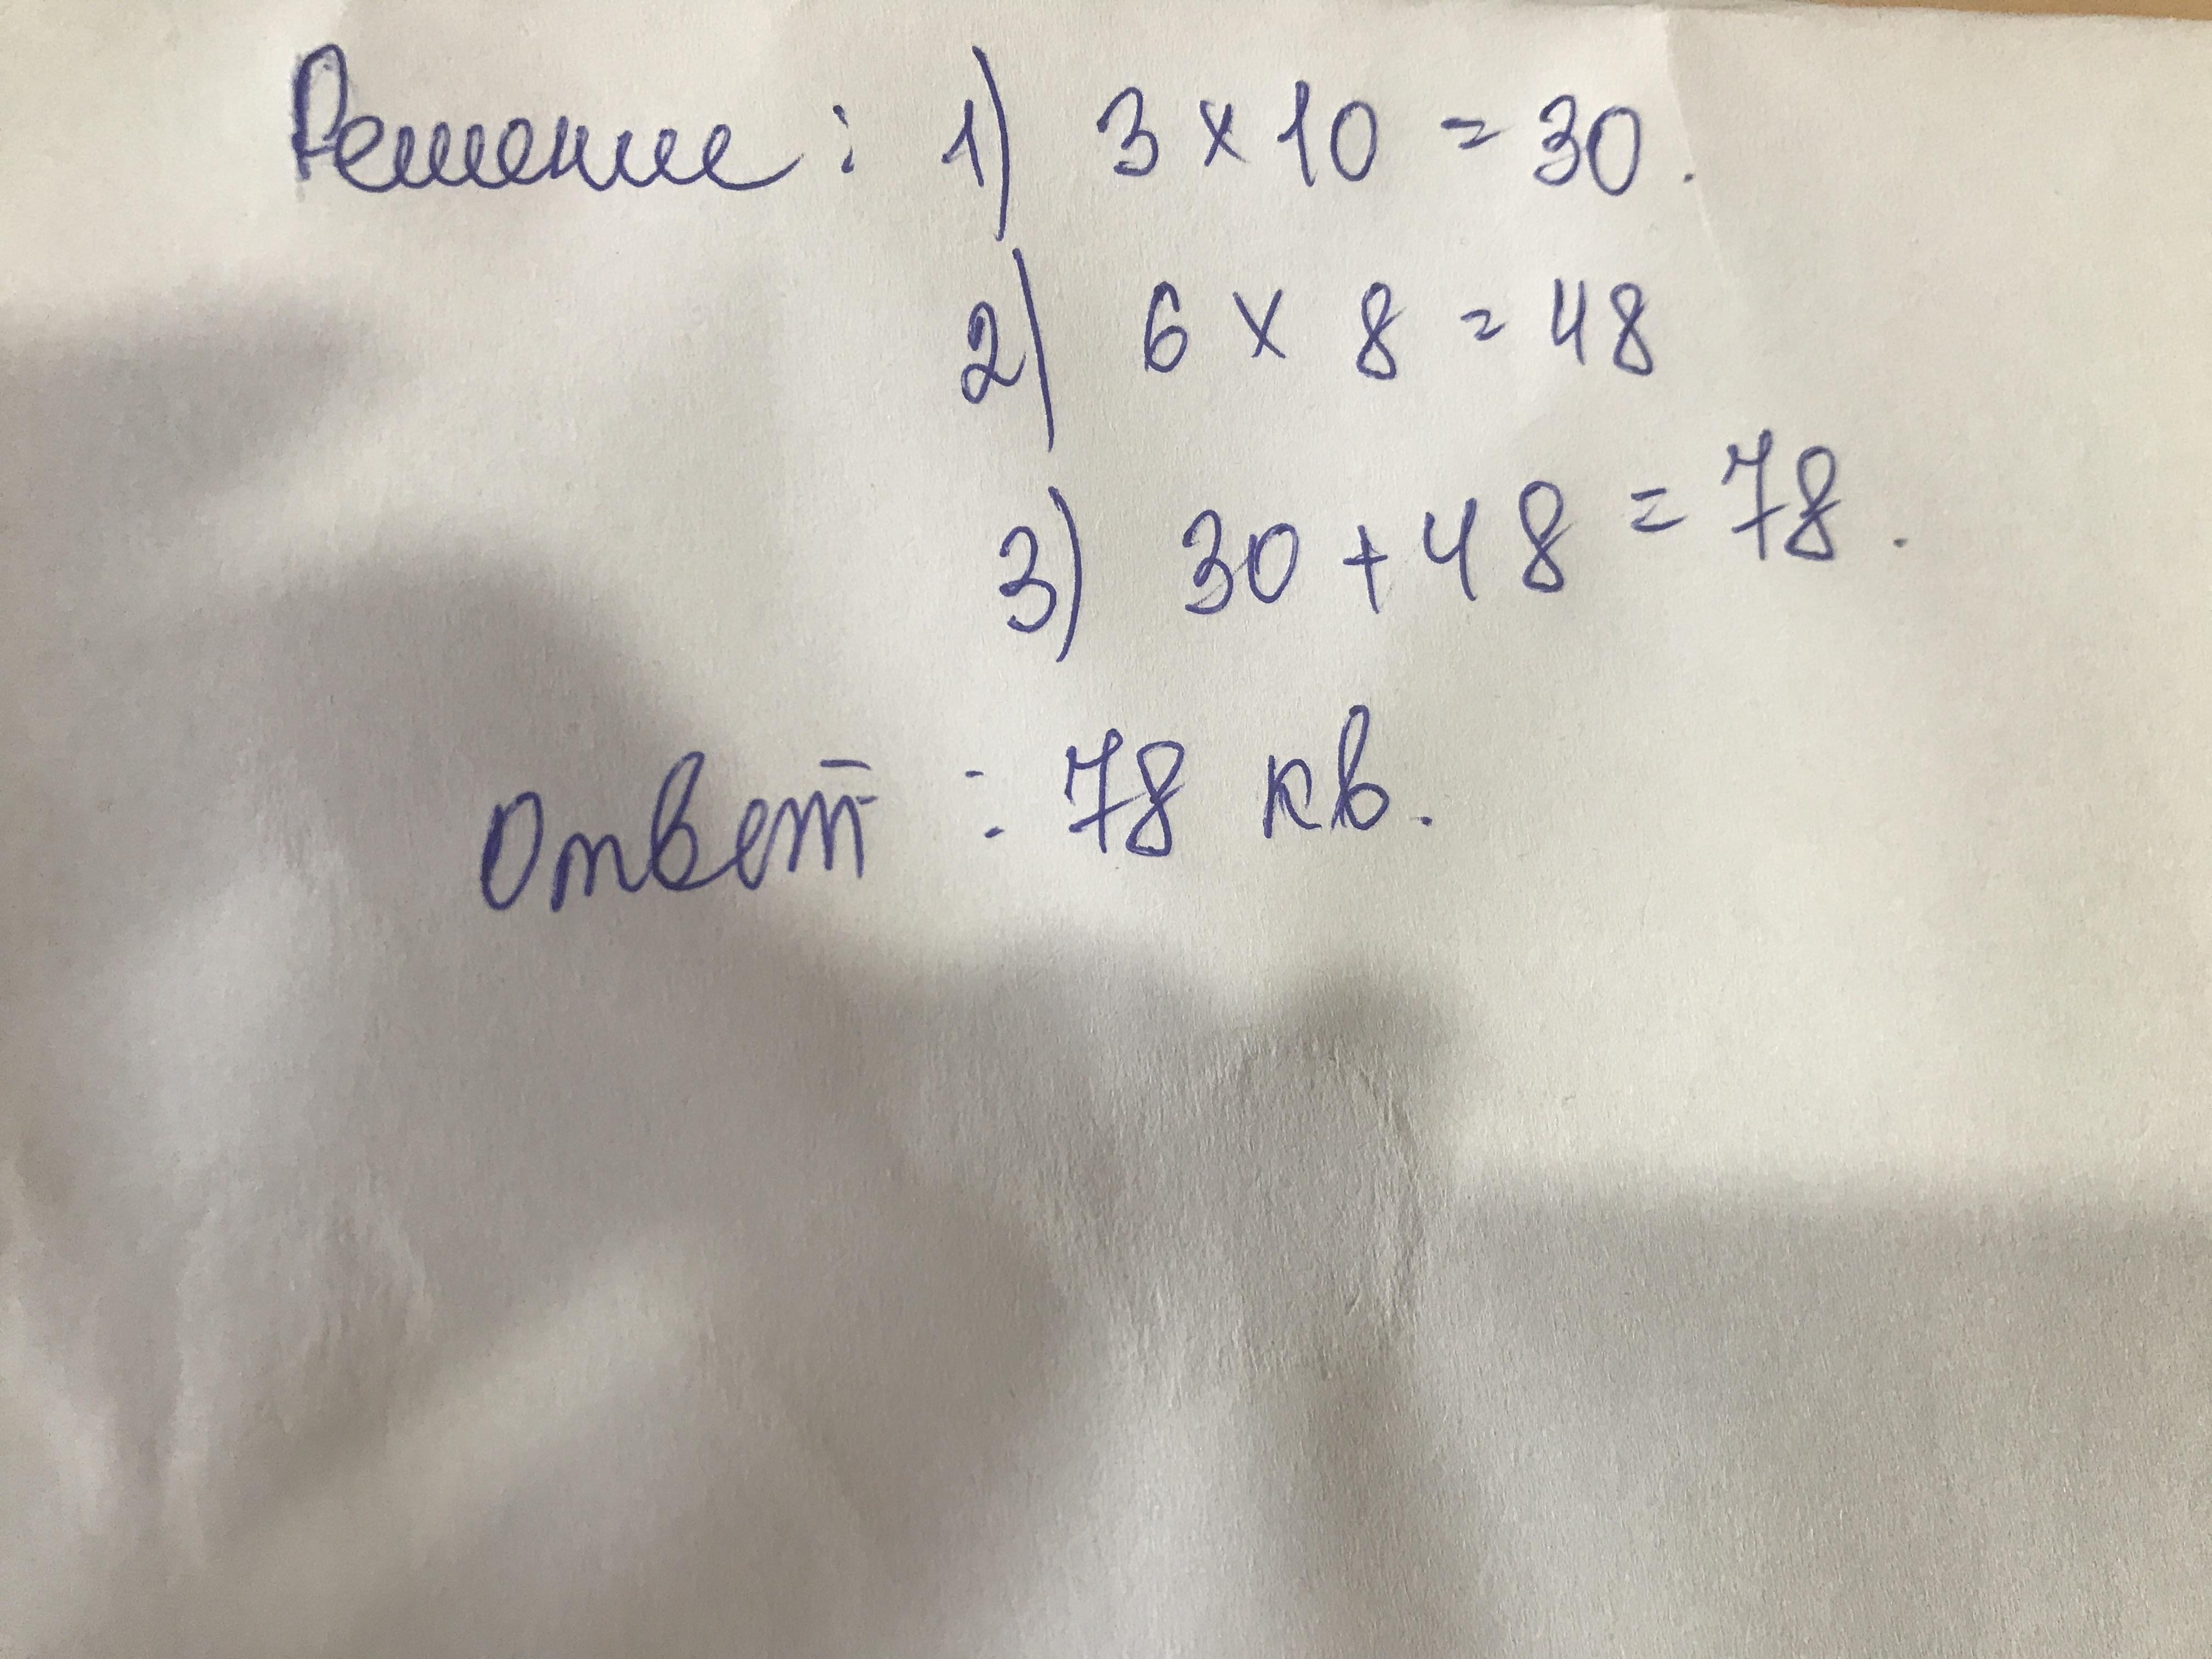 Решение: 1) 3 x 10 = 30.
2) 6 x 8 = 48
3) 30 + 48 = 78.
Ответ: 78 кв.